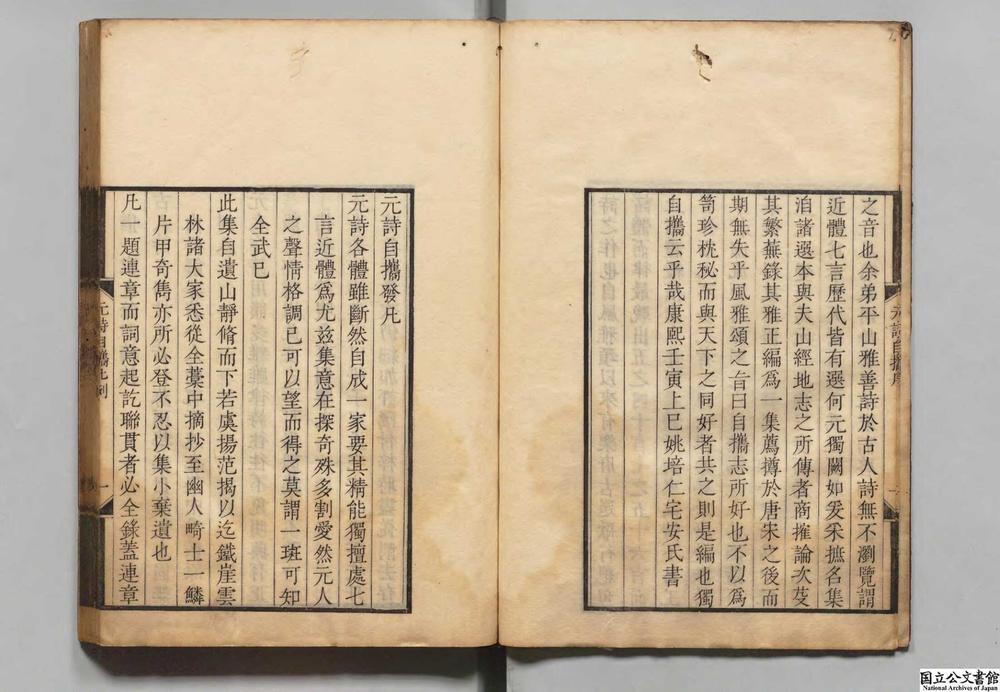 之音也余弟平山雅善詩於古人詩無不瀏覽謂
近體七言歷代皆有選何元獨闕如爰采摭名集
洎諸選本與夫山經地志之所傳者商搉論次芟
其繁蕪錄其雅正編爲一集薦摶於唐宋之後而
期無失乎風雅頌之旨曰自攜志所好也不以爲
笥珍枕秘而與天下之同好者共之則是編也獨
自攜云乎哉康熙壬寅上巳姚培仁宅安氏書
元詩自攜發凡
元詩各體雖斷然自成一家要其精能獨擅處七
言近體爲尤茲集意在探奇殊多割愛然元人
之聲情格調已可以望而得之莫謂一斑可知
全武已
此集自遺山靜脩而下若虞揚范揭以迄鐵崖雲
林諸大家悉從全藁中摘抄至幽人畸士一鱗
片甲奇雋亦所必登不忍以集小棄遺也
凡一題連章而詞意起訖聯貫者必全錄蓋連章
元詩自攜凡例
一
国立公文書館
National Archives of Japan